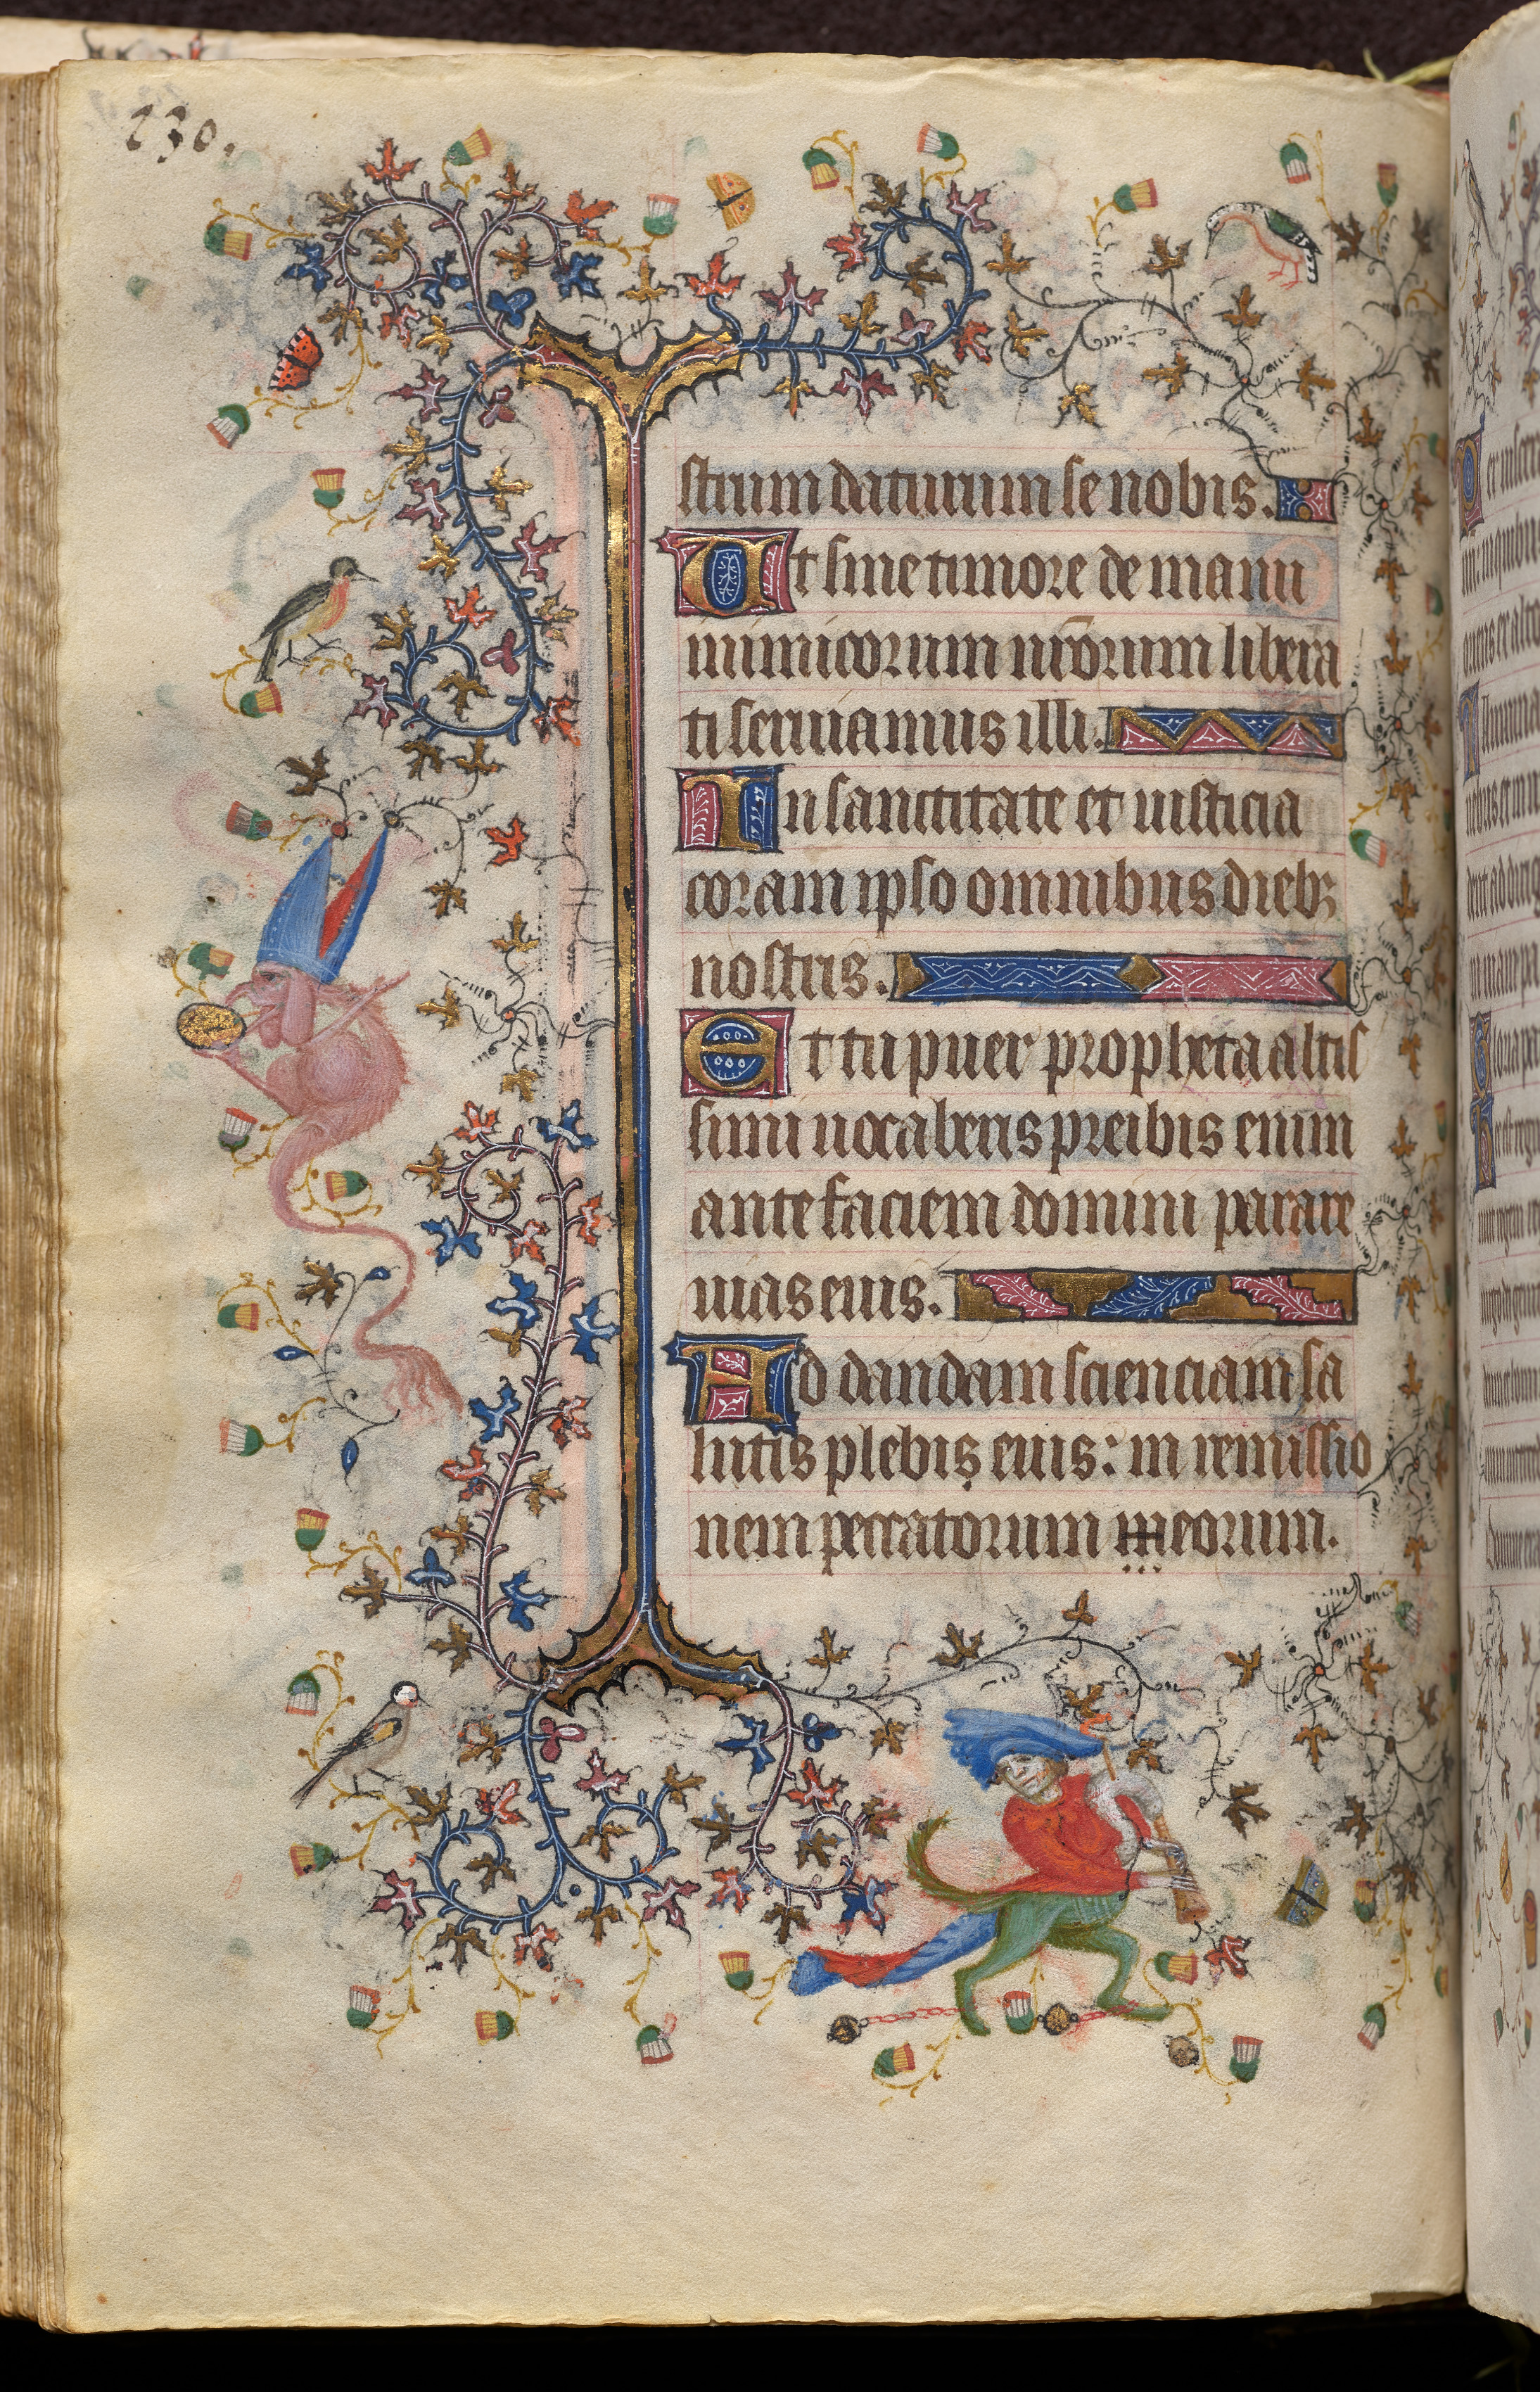 230.
strum daturum se nobis.
Ut sine timore de manu
inimicorum nr̄orum libera
ti seruiamus illi.
In sanctitate et iusticia
coram ipso omnibus dieb;
nostris.
Et tu puer propheta altis
simi uocaberis preibis enim
ante faciem domini parare
uias eius.
Ad dandam scienciam sa
lutis plebis eius: in remissio
nem peccatorum meorum.